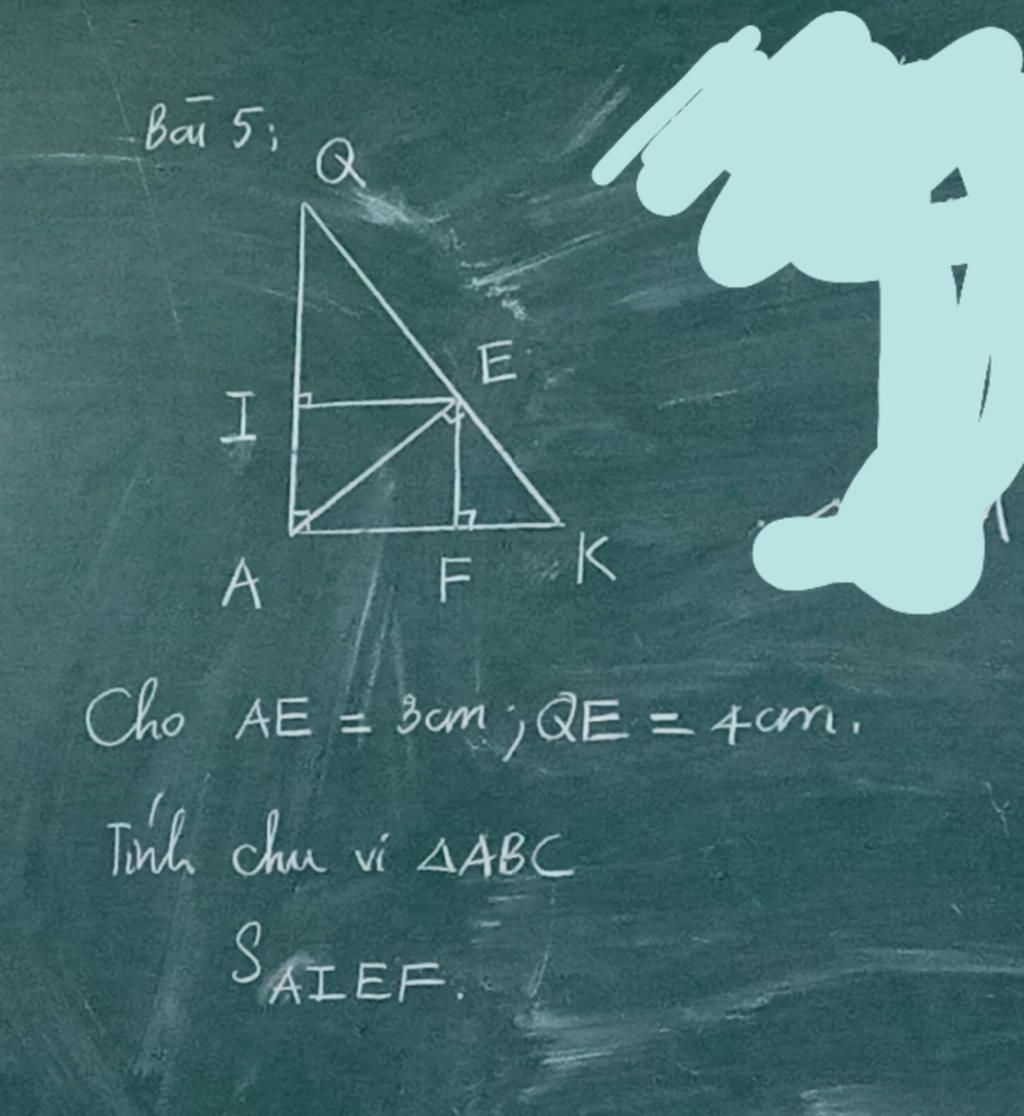 Bài 5;
Q
E
I
A
F
K
Cho AE = 3cm; QE = 4cm.
Tính chu vi △ABC
S AIEF.